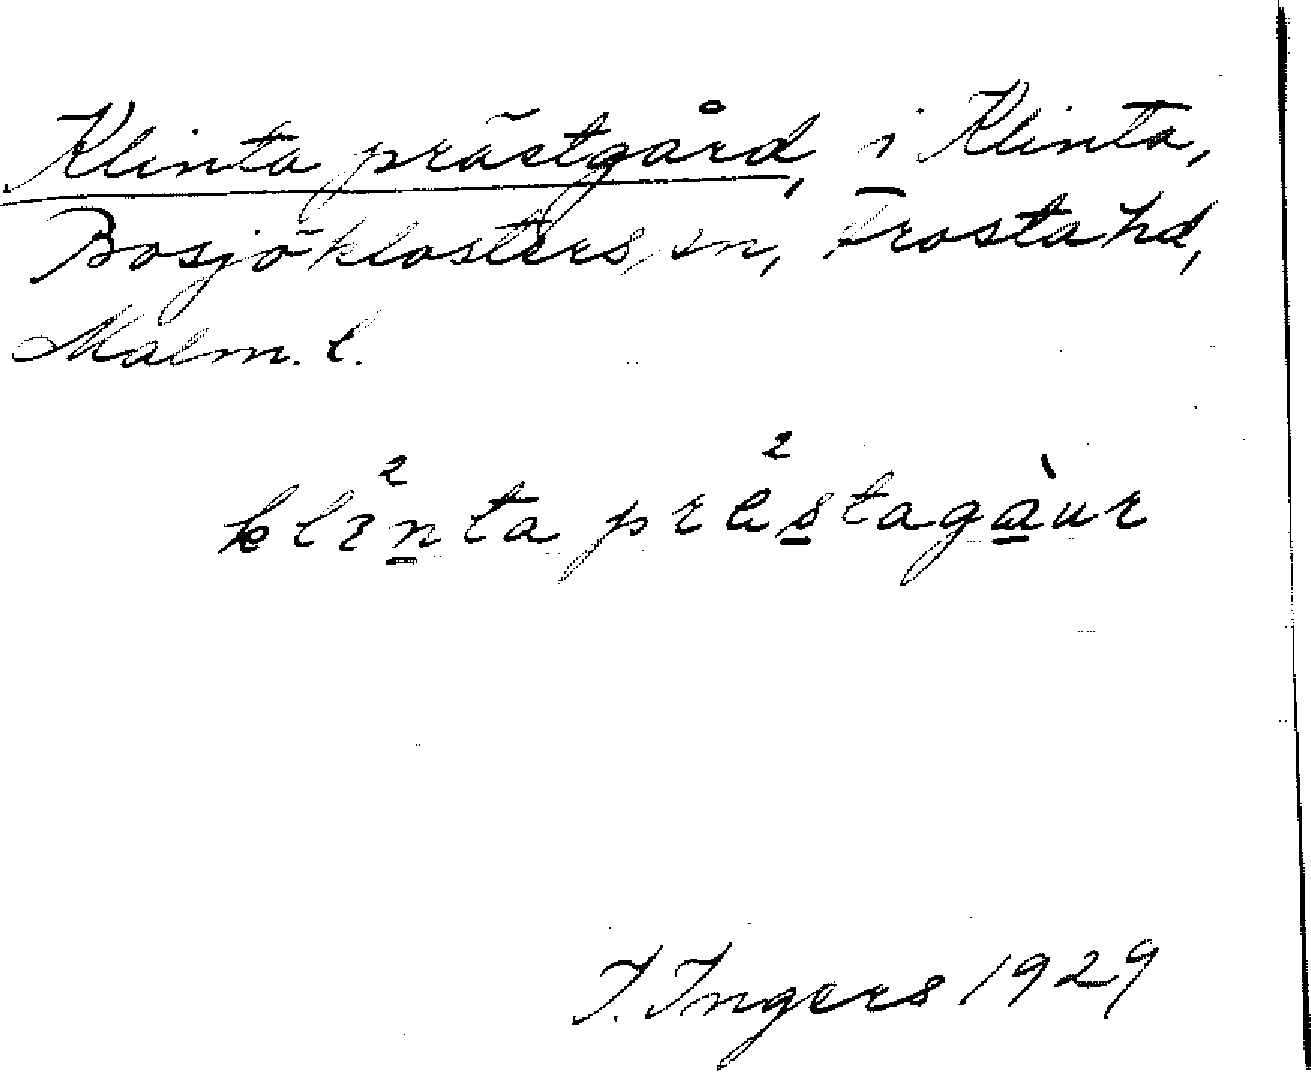 Klinta prästgård, i Klinta,
Bosjöklosters sn, Frosta hd,
Malm. l.
klin²ta präs²tagàur
I. Ingers 1929